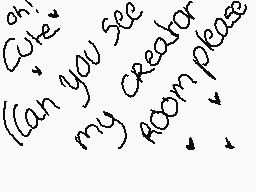 oh!
Cute
Can you see
my creator
room please